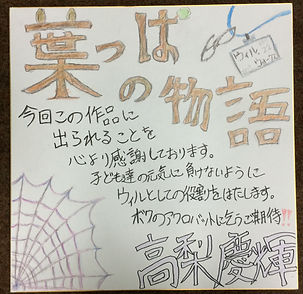 葉っぱ
の物語
ウィル
今回この作品に
出られることを
心より感謝しております。
子ども達の元気に負けないように
ウィルとしての役割をはたします。
ボクのアクロバットに乞うご期待!!
高梨慶輝